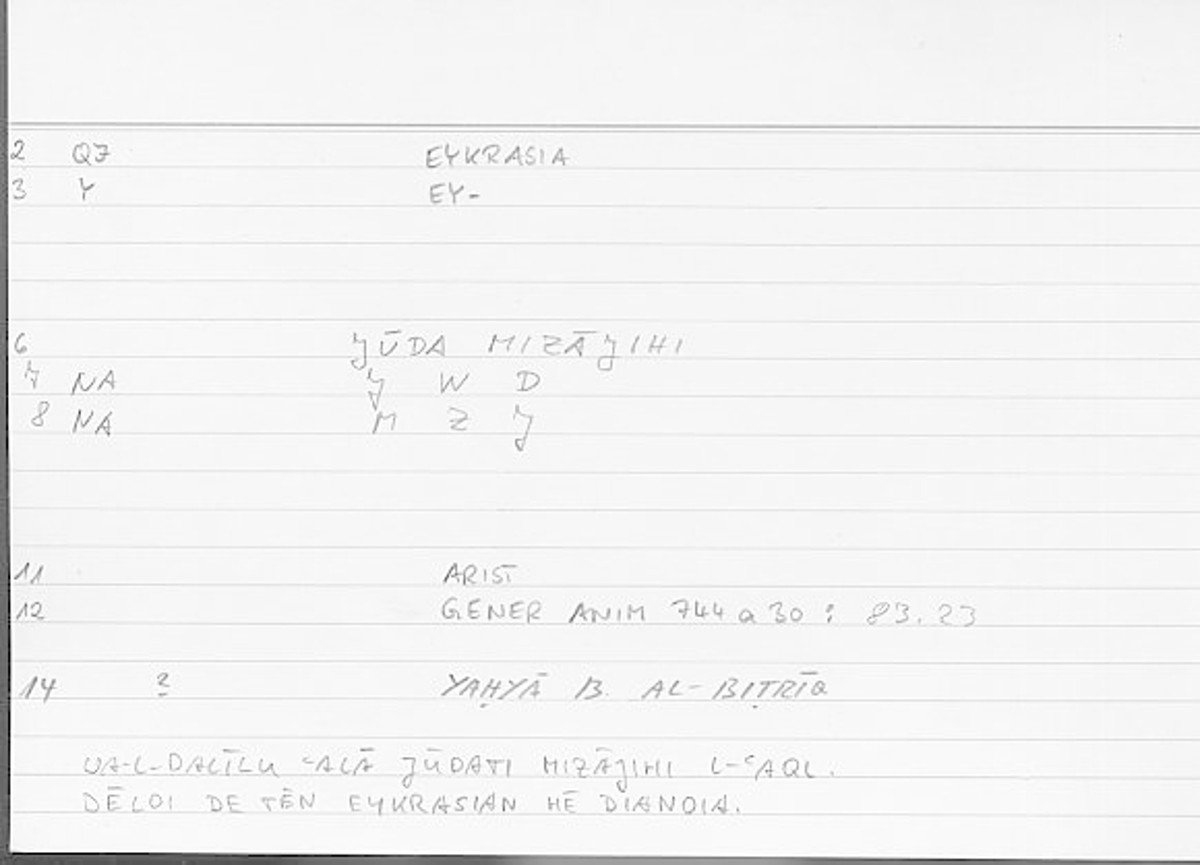 2 QZ EYKRASIA
3 Y EY-
6 JŪDA MIZĀJIHI
7 NA J W D
8 NA M Z J
11 ARIST
12 GENER ANIM 744 a 30 : 83.23
14 2 YAḤYĀ B. AL-BIṬRĪQ
WA-L-DALĪLU ʿALĀ JŪDATI MIZĀJIHI L-ʿAQL.
DĒLOI DE TĒN EYKRASIAN HĒ DIANOIA.